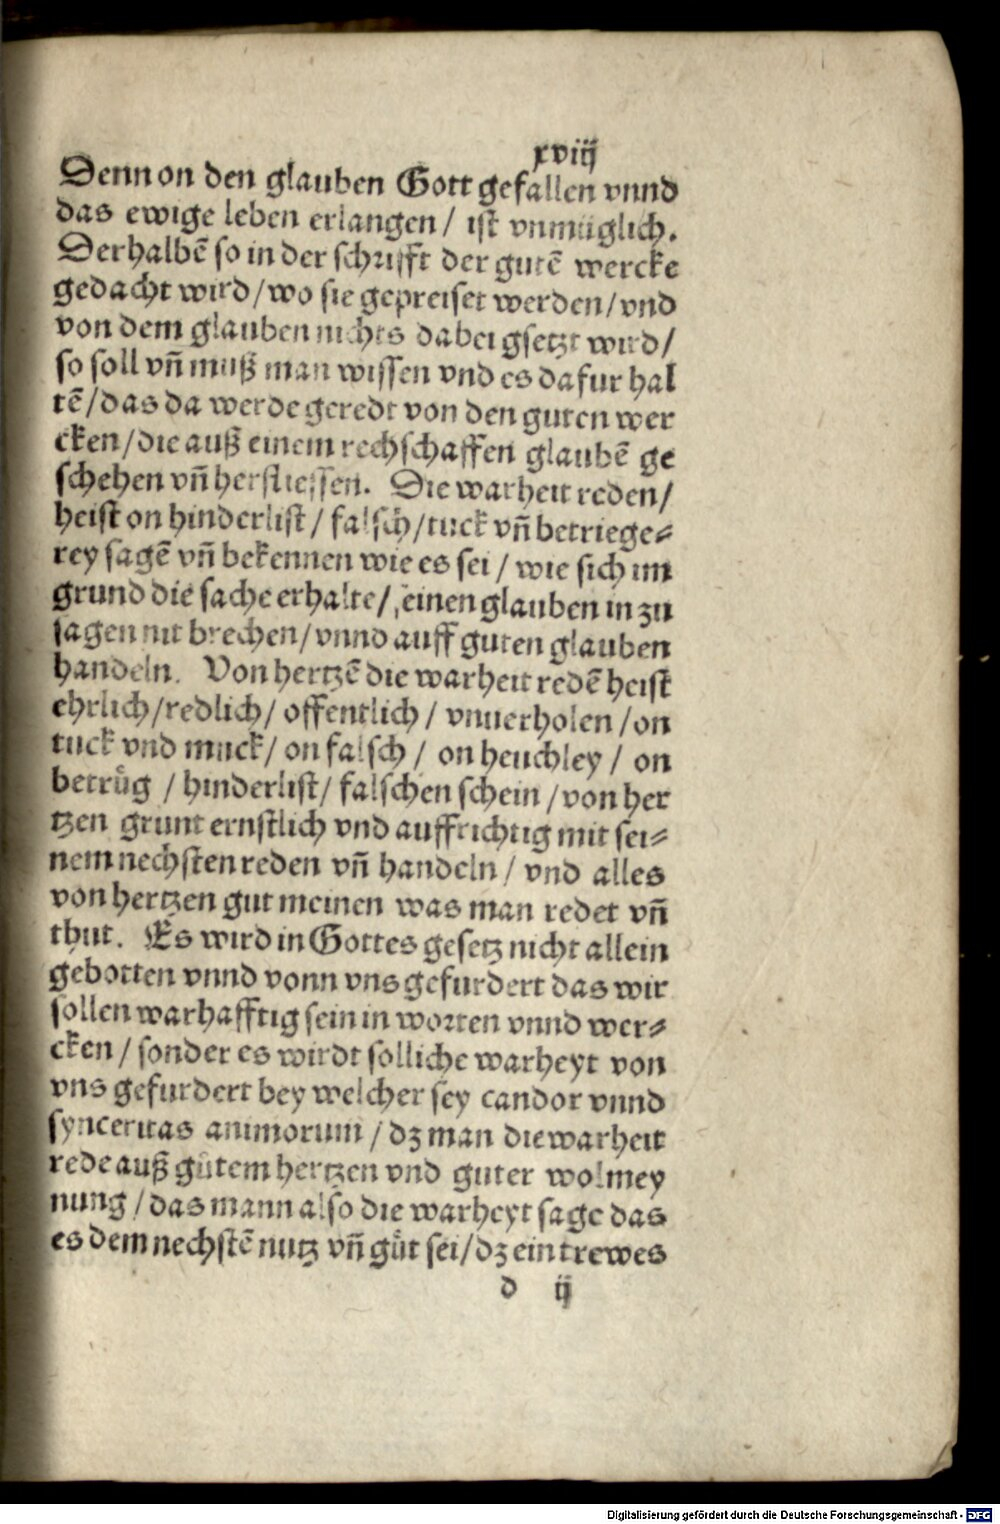 xviij
Denn on den glauben Gott gefallen vnnd
das ewige leben erlangen / ist vnmüglich.
Derhalbē so in der schrifft der gutē wercke
gedacht wird / wo sie gepreiset werden / vnd
von dem glauben nichts dabei gsetzt wird /
so soll vn̄ muß man wissen vnd es dafur hal
tē / das da werde geredt von den guten wer
cken / die auß einem rechschaffen glaubē ge
schehen vn̄ herfliessen. Die warheit reden /
heist on hinderlist / falsch / tuck vn̄ betriege⸗
rey sagē vn̄ bekennen wie es sei / wie sich im
grund die sache erhalte / einen glauben in zu
sagen nit brechen / vnnd auff guten glauben
handeln. Von hertzē die warheit redē heist
ehrlich / redlich / offentlich / vnuerholen / on
tuck vnd muck / on falsch / on heuchley / on
betrůg / hinderlist / falschen schein / von her
tzen grunt ernstlich vnd auffrichtig mit sei⸗
nem nechsten reden vn̄ handeln / vnd alles
von hertzen gut meinen was man redet vn̄
thut. Es wird in Gottes gesetz nicht allein
gebotten vnnd vonn vns gefurdert das wir
sollen warhafftig sein in worten vnnd wer⸗
cken / sonder es wirdt solliche warheyt von
vns gefurdert bey welcher sey candor vnnd
synceritas animorum / dz man die warheit
rede auß gůtem hertzen vnd guter wolmey
nung / das mann also die warheyt sage das
es dem nechstē nutz vn̄ gůt sei / dz ein trewes
d ij
Digitalisierung gefördert durch die Deutsche Forschungsgemeinschaft - DFG